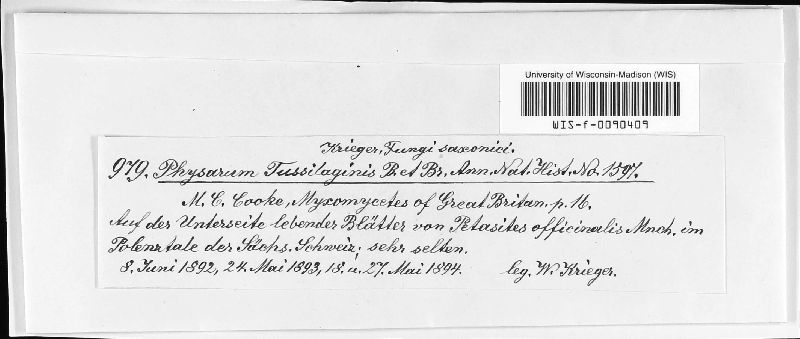 University of Wisconsin-Madison (WIS)
WIS-f-0090409
Krieger, Fungi saxonici.
979. Physarum Tussilaginis B. et Br. Ann. Nat. Hist. No. 1397.
M. C. Cooke, Myxomycetes of Great Britan. p. 16.
Auf der Unterseite lebender Blätter von Petasites officinalis Mnch. im
Polenztale der Sächs. Schweiz; sehr selten.
8. Juni 1892, 24. Mai 1893, 18. u. 27. Mai 1894. leg. W. Krieger.